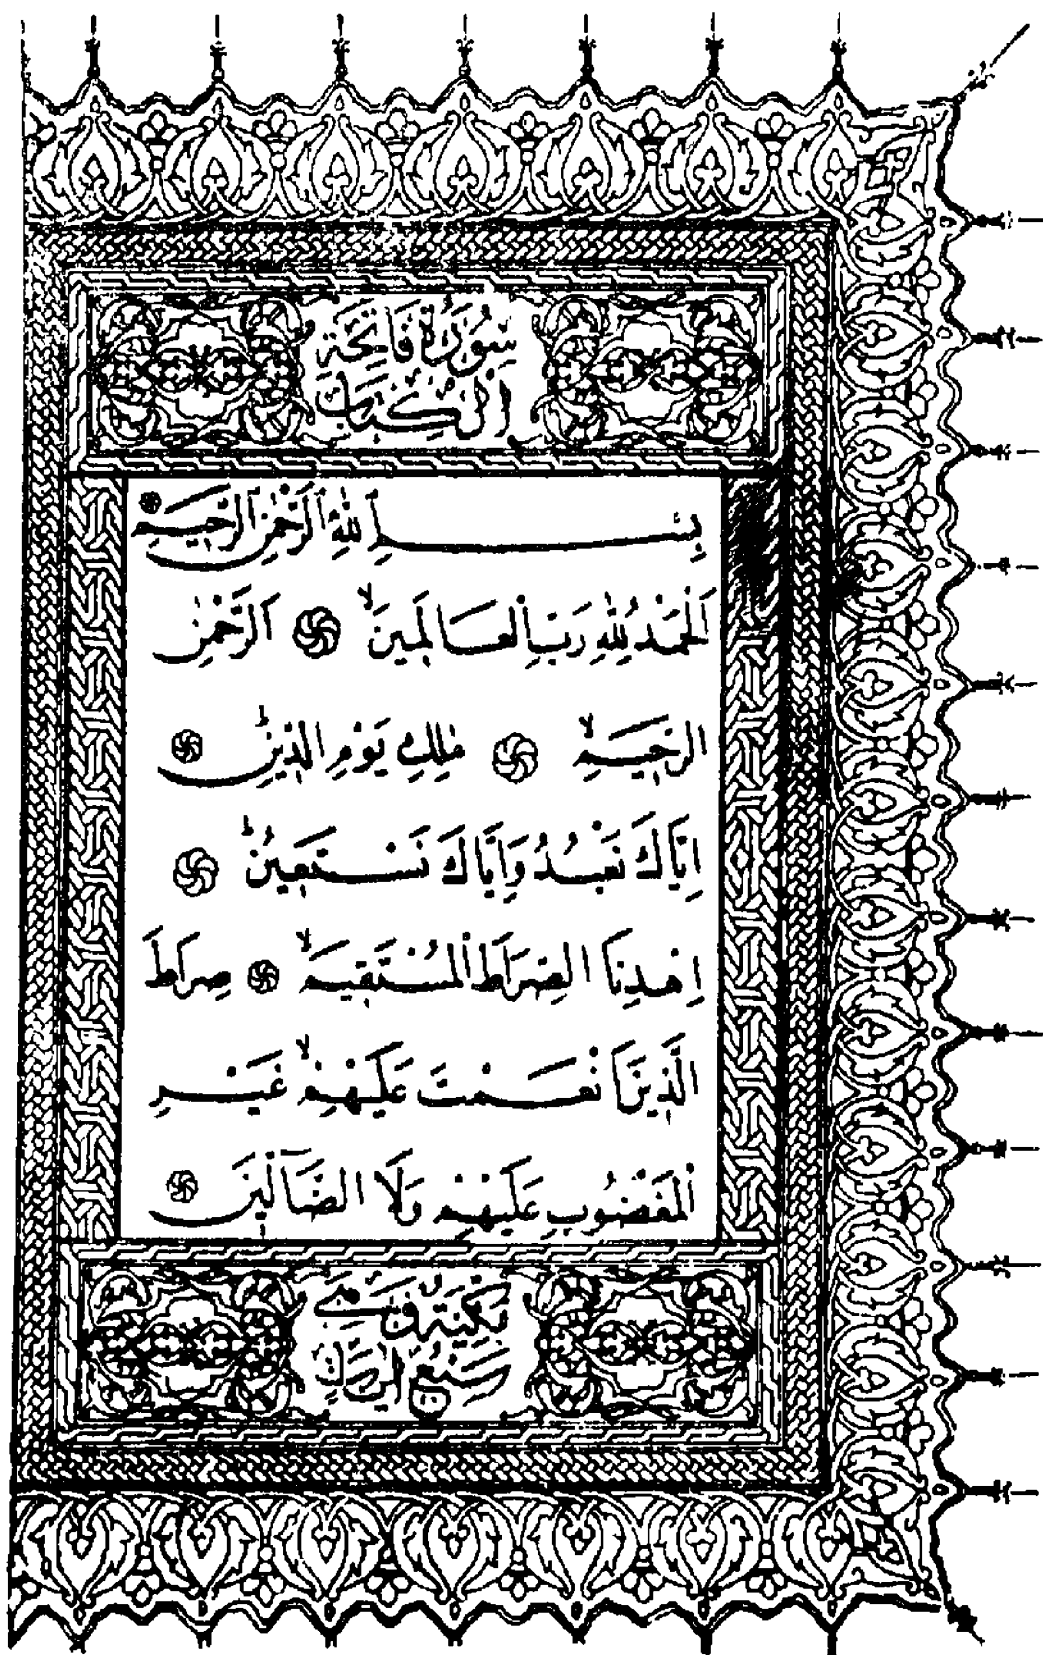 سُورَةُ فَاتِحَةِ
الْكِتَابِ
بِسْمِ اللّٰهِ الرَّحْمٰنِ الرَّحِيمِ
اَلْحَمْدُ لِلّٰهِ رَبِّ الْعَالَمِينَۙ اَلرَّحْمٰنِ
الرَّحِيمِۙ مٰلِكِ يَوْمِ الدِّينِۜ
اِيَّاكَ نَعْبُدُ وَاِيَّاكَ نَسْتَعِينُۜ
اِهْدِنَا الصِّرَاطَ الْمُسْتَقِيمَۙ صِرَاطَ
الَّذِينَ اَنْعَمْتَ عَلَيْهِمْۙ غَيْرِ
الْمَغْضُوبِ عَلَيْهِمْ وَلَا الضَّالِّينَ
مَكِّيَّةٌ وَهِيَ
سَبْعُ اٰيَاتٍ